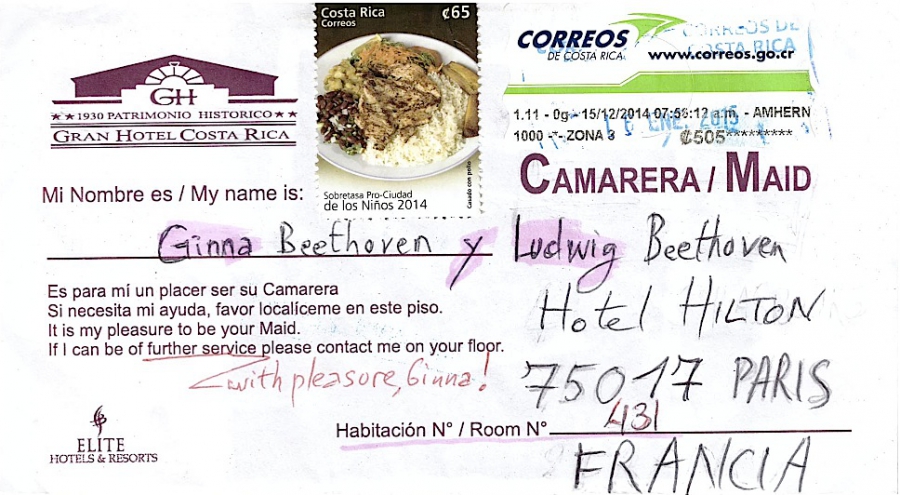 Costa Rica ¢65
Correos
CORREOS
DE COSTA RICA
www.correos.go.cr
CORREOS DE
COSTA RICA
1.11 - 0g - 15/12/2014 07:56:12 a.m. - AMHERN
1000 -*- ZONA 3 - ¢505*********
16 ENE. 2015
GH
★★1930 PATRIMONIO HISTORICO★★
GRAN HOTEL COSTA RICA
Sobretasa Pro-Ciudad
de los Niños 2014
Casado con pollo
CAMARERA / MAID
Mi Nombre es / My name is:
Ginna Beethoven y Ludwig Beethoven
Es para mí un placer ser su Camarera
Si necesita mi ayuda, favor localíceme en este piso.
It is my pleasure to be your Maid.
If I can be of further service please contact me on your floor.
with pleasure, Ginna!
Hotel HILTON
75017 PARIS
431
Habitación N° / Room N°
FRANCIA
ELITE
HOTELS & RESORTS